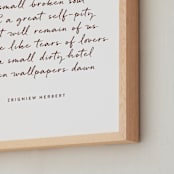 small broken soul
a great self-pity
t will remain of us
e like tears of lovers
a small dirty hotel
en wallpapers dawn
ZBIGNIEW HERBERT